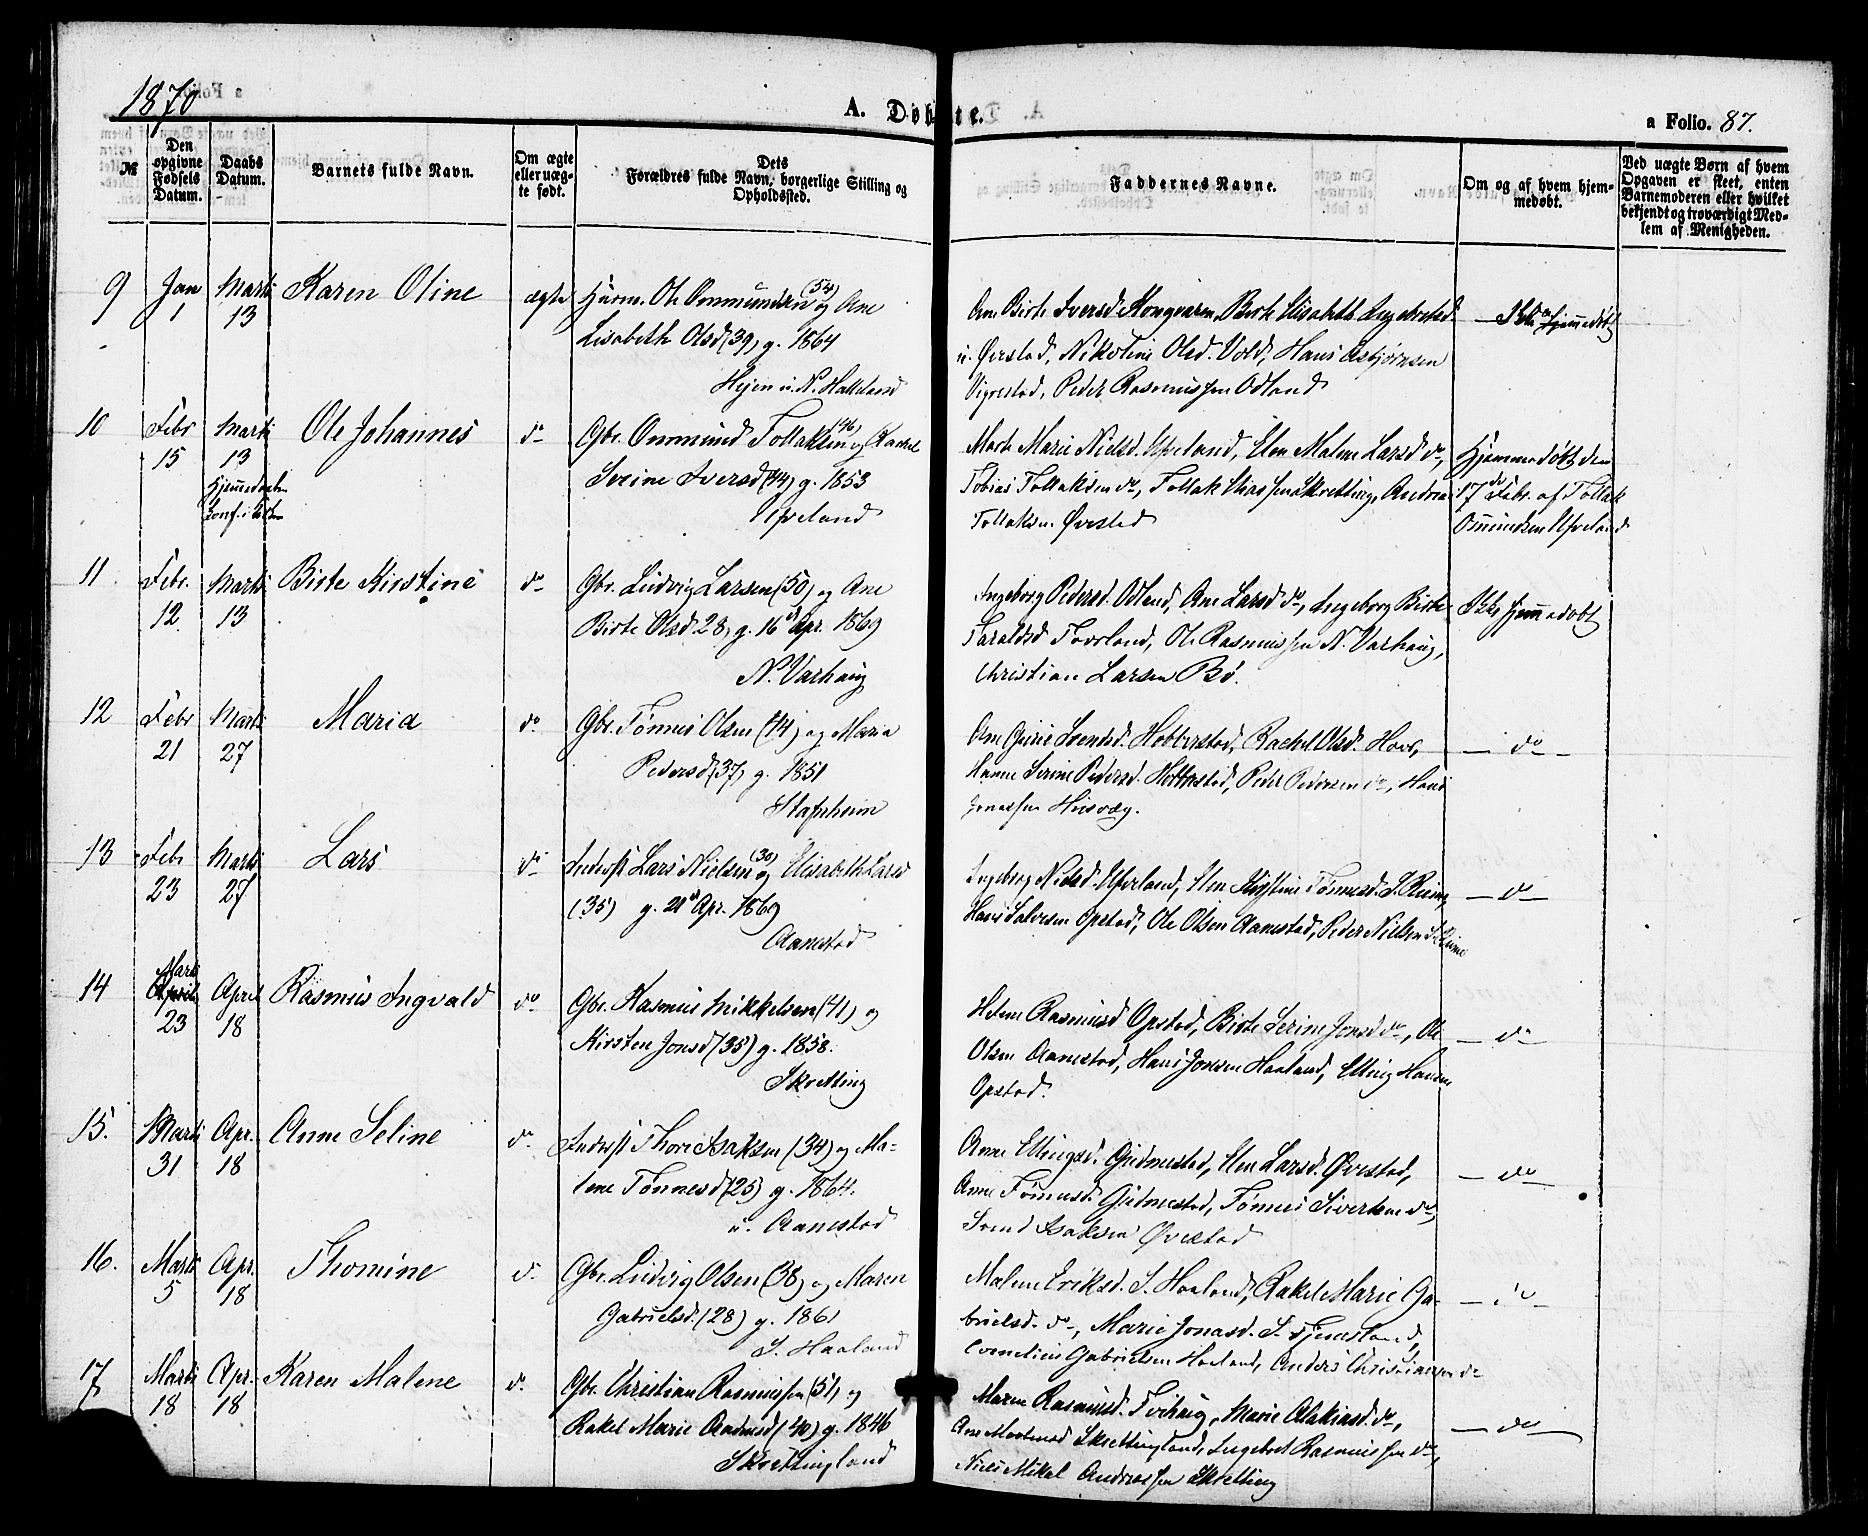 1870
A. Døbte.
a Folio. 87.
№
Den opgivne Fødsels Datum.
Daabs Datum.
Barnets fulde Navn.
Om ægte eller uægte født.
Dets Forældres fulde Navn, borgerlige Stilling og Opholdssted.
Faddernes Navne.
Om og af hvem hjemmedøbt.
Ved uægte Børn af hvem Opgaven er skeet, enten Barnemoderen eller hvilket bekjendt og troværdigt Medlem af Menigheden.
9 Jan 1 Marts 13 Karen Oline ægte
Huusm. Ole Ommundsen (54) og Ane
Lisabeth Olsd (39) g. 1864
Ane Birte Iversd. Kongvarn, Berte Elisabeth Ingebretsd.
u. Øvrstad, Nikoline Olsd. Vold, Hans Asbjørnsen
Vigrestad, Peder Rasmussen Odland
Ikke hjemmedøbt
10 Febr 15 Marts 13 Ole Johannes do
Gbr. Ommund Tollaksen (46) og Rachel
Serine Iversd (44) g. 1853
Ueland
Marte Marie Nielsd. Ueland, Elen Malene Larsd do,
Tobias Tollaksen do, Tollak Eliassen Skretting, Andreas
Tollaksen Øvrstad
Hjemmedøbt den
17de Febr. af Tollak
Ommundsen Ueland
11 Febr. 12 Marts 13 Birte Kirstine do
Gbr. Ludvig Larsen (50) og Ane
Birte Olsd 28, g. 16d Apr. 1869
N. Varhaug
Ingeborg Pedersd. Odland, Ane Larsd do, Ingeborg Birte
Taraldsd Tovland, Ole Rasmussen N. Varhaug,
Christian Larsen Bø.
Ikke hjemmedøbt
12 Febr 21 Marts 27 Maria do
Gbr. Tønnes Olsen (44) og Maria
Pedersd (37) g. 1851
Stapnheim
Ane Gurie Svendsd. Hobberstad, Rachel Olsd. Hoar,
Hanne Serine Pedersd. Hobberstad, Peder Pedersen do, Hans
Jonassen Husvæg.
do
13 Febr 23 Marts 27 Lars do
Inderst Lars Nielsen (30) og Elisabeth Larsd
(35) g. 21d Apr. 1869
Aanestad
Ingeborg Nielsd. Ueland, Elen Kristine Tønnesd. S. Reime,
Hans Salvesen Opstad, Ole Olsen Aanestad, Peder Nielsen S. Reime
do
14 Marts 23 April 18 Rasmus Ingvald do
Gbr. Rasmus Mikkelsen (41) og
Kirsten Jonsd (35) g. 1858.
Skretting
Helene Rasmusd Opstad, Birte Serine Jonsd do, Ole
Olsen Aanestad, Hans Jonsen Haaland, Elling Hansen
Opstad.
do
15. Marts 31 Apr. 18 Anne Seline do
Inderst Thore Isaksen (34) og Ma-
lene Tønnesd (25) g. 1864.
u. Aanestad
Anne Ellingsd. Gudmestad, Elen Larsd. Øvrstad,
Anne Tønnesd. Gudmestad, Tønnes Sivertsen do,
Svend Isaksen Øvrstad
do
16. Marts 5 Apr. 18 Thomine do
Gbr. Ludvig Olsen (38) og Maren
Gabrielsd. (28) g. 1861
S. Haaland
Malene Eriksd. S. Haaland, Rakel Marie Ga-
brielsd. do, Marie Jonasd. S. Fjermestad,
Cornelius Gabrielsen Haaland, Anders Christiansen do
do
17 Marts 18 Apr. 18 Karen Malene do
Gbr. Christian Rasmussen (51) og
Rakel Marie (40) g. 1846
Skrettingland
Maren Rasmusd. Tvihaug, Marie do,
Ane Skrettingland, Ingebret Rasmussen do,
Niels Mikal Andreassen Skretting
do